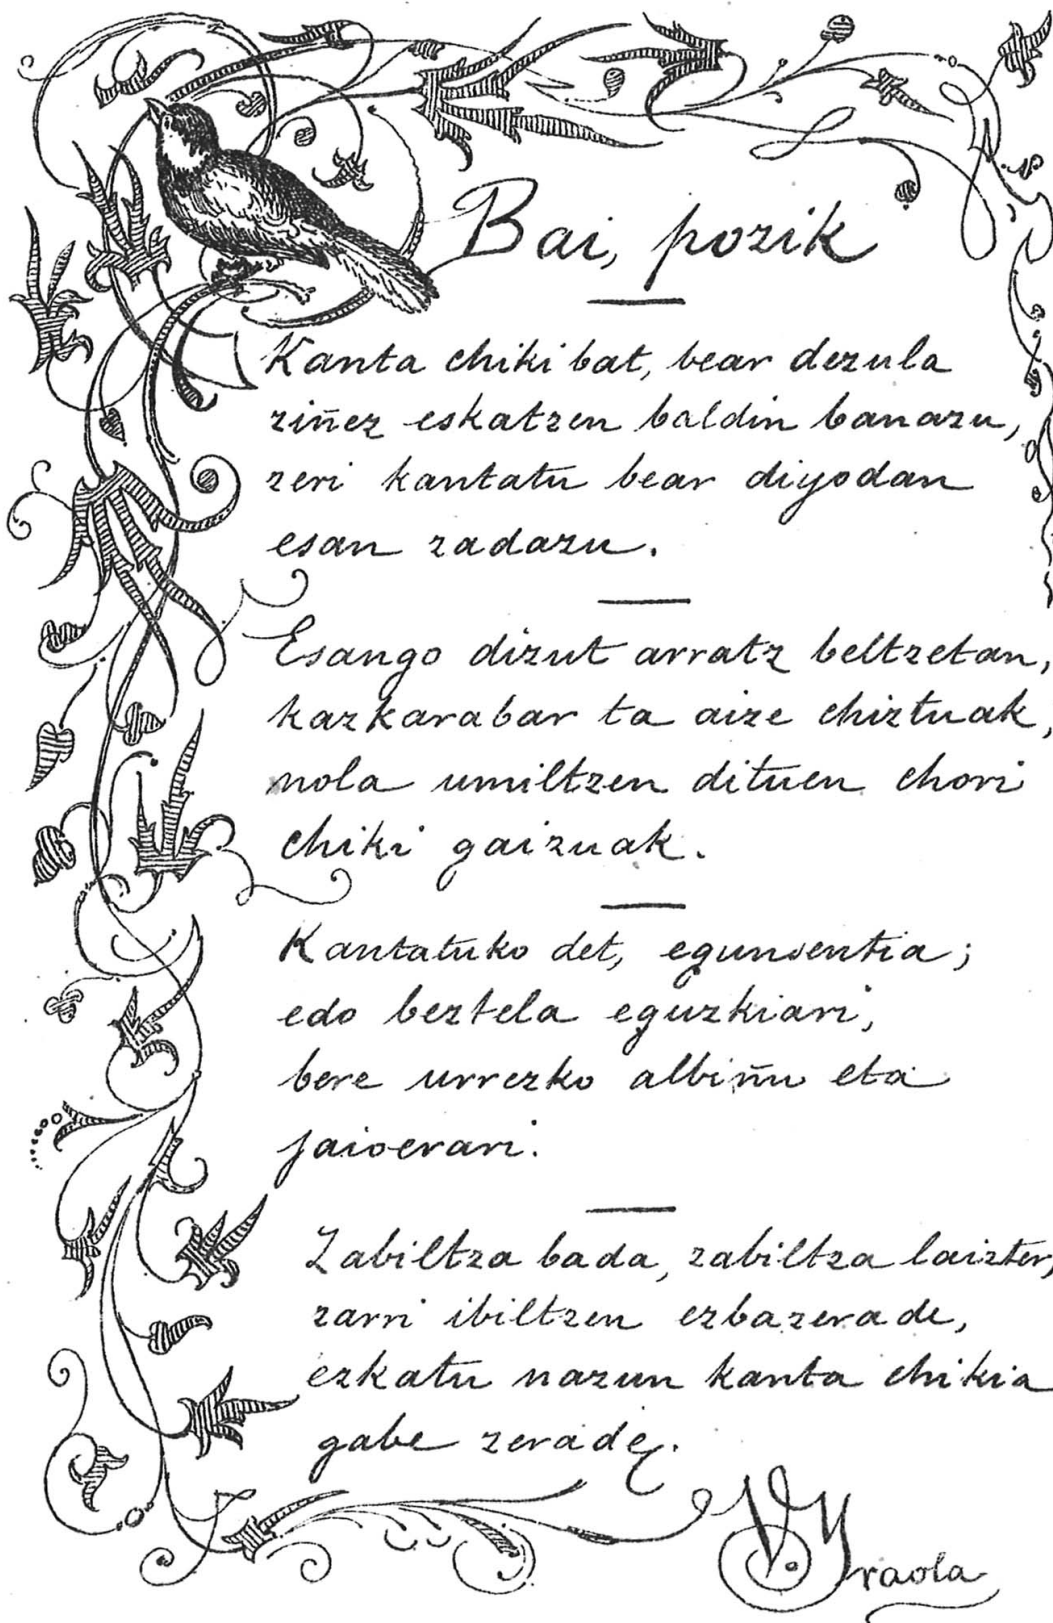 Bai, pozik
Kanta chiki bat, bear dezula
ziñez eskatzen baldin banazu,
zeri kantatu bear diyodan
esan zadazu.
Esango dizut arratz beltzetan,
kazkarabar ta aize chiztuak,
nola umiltzen dituen chori
chiki gaizuak.
Kantatuko det, egunsentia;
edo beztela eguzkiari,
bere urrezko albiñu eta
jaioerari.
Zabiltza bada, zabiltza laizter,
zarri ibiltzen ezbazerade,
ezkatu nazun kanta chikia
gabe zerade.
V. Yraola